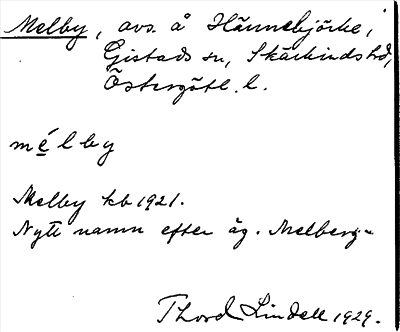 Melby, avs. å Hännebjörke,
Gistads sn, Skärkinds hd,
Östergötl. l.
mélby
Melby kb 1921.
Nytt namn efter äg. Melberg-
Thord Lindell 1929.